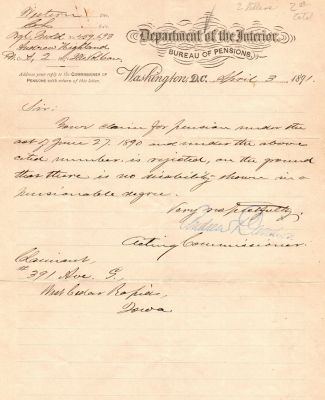 Department of the Interior,
BUREAU OF PENSIONS,
Washington, D.C. April 3 1891.
Andrew Highland
Address your reply to the COMMISSIONER OF
PENSIONS with return of this letter.
Sir:
Your claim for pension under the
act of June 27, 1890 and under the above
cited number is rejected, on the ground
that there is no disability shown in a
pensionable degree.
Very respectfully,
Acting Commissioner.
Claimant
# 391 Ave. F.
West Cedar Rapids,
Iowa